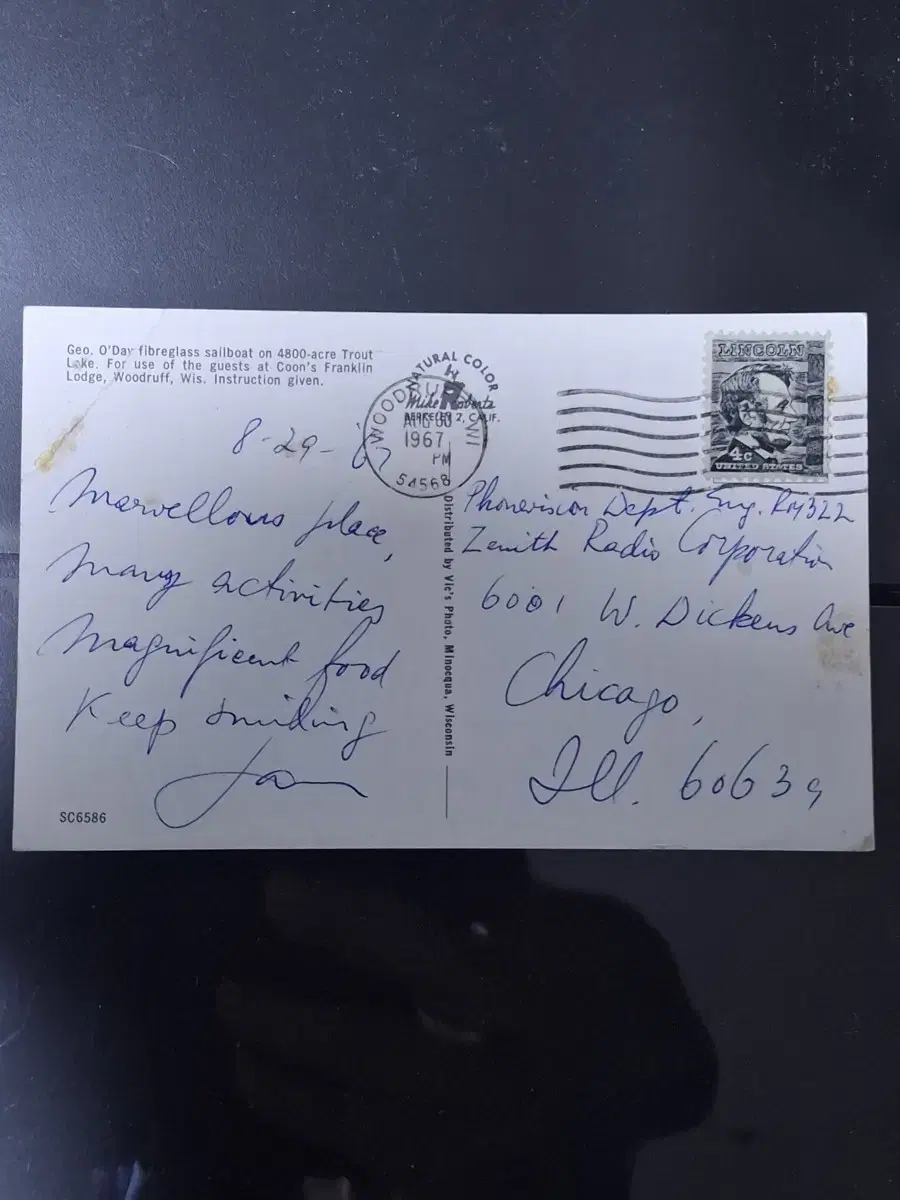 Geo. O'Day fibreglass sailboat on 4800-acre Trout
Lake. For use of the guests at Coon's Franklin
Lodge, Woodruff, Wis. Instruction given.
NATURAL COLOR
Mike Roberts
BERKELEY 2, CALIF.
WOODRUFF WI
AUG 30
1967
PM
54568
LINCOLN
4c
UNITED STATES
8-29-67
Marvellous place,
Many activities
Magnificent food
Keep smiling
Jan
Distributed by Vic's Photo, Minocqua, Wisconsin
Phonevision Dept. Eng. Rm 322
Zenith Radio Corporation
6001 W. Dickens Ave
Chicago,
Ill. 60639
SC6586